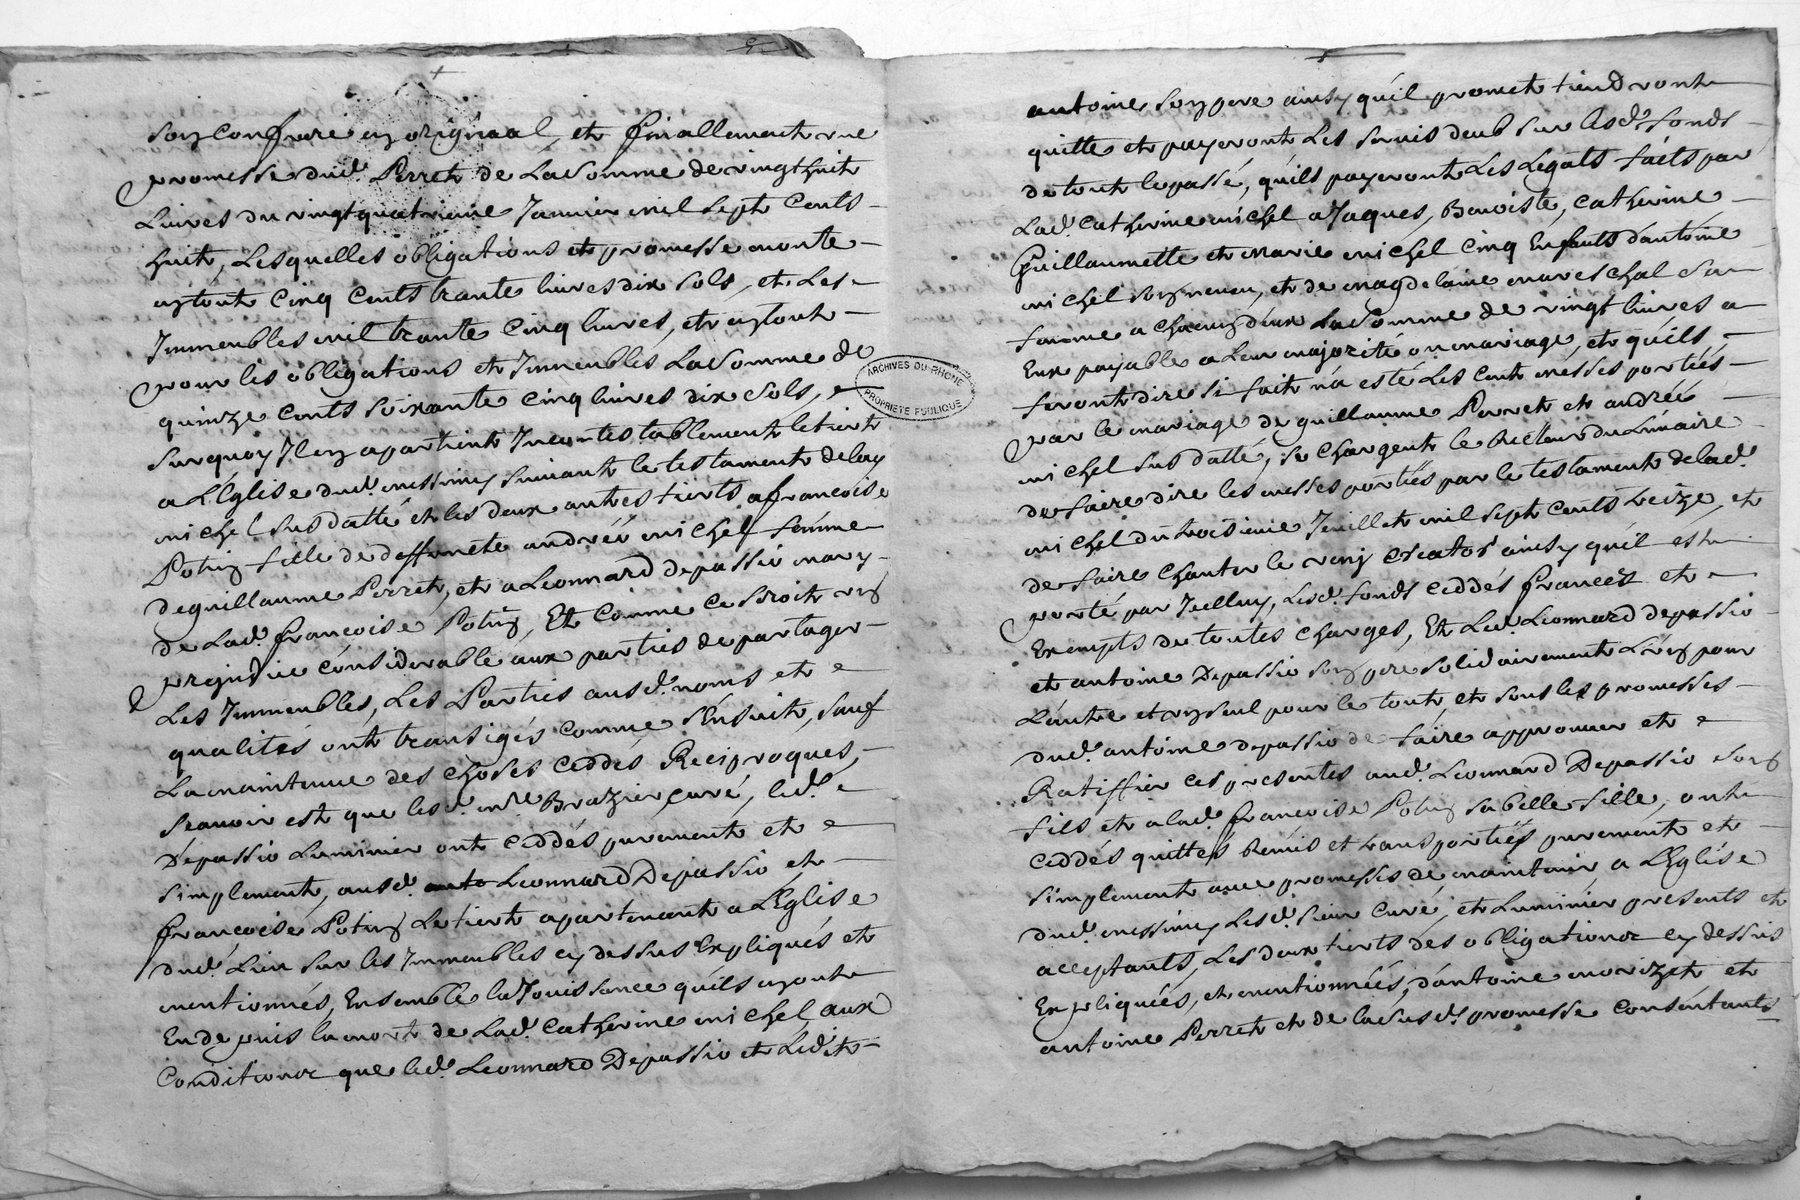 son confrere en original, et finallement une
promesse dud. Perret de La Somme de vingt huit
Livres du vingt quatrieme Janvier mil sept cents
huit, Lesquelles obligations et promesse monte
en tout Cinq cents trante livres dix sols, et Les
Immeubles mil trante Cinq livres, et en tout
pour les obligations et Immeubles La Somme de
quinze cents soixante cinq livres dix sols,
Surquoy Il en apartient Incontestablement le tiert
a L'Eglise dud. messimy suivant le testament de lay
michel susdatté et les deux autres tierts a francoise
Potin fille de deffuncte andréé michel femme
de guillaume Perret, et a Leonnard depassio mary
de Lad. francoise Potin, Et comme ce seroit un
prejudice considerable aux parties de partager
Les Immeubles, Les Parties ausd. noms et
qualités ont transigés comme s'Ensuit, sauf
La maintenue des choses ceddés Reciproques,
scavoir est que lesd. mre Brazier curé, led.
Depassio Luminier ont ceddés purement et
simplement, ausd. Leonnard Depassio et
francoise Potin Le tiert apartenant a L'Eglise
dud. Lieu sur les Immeubles cy dessus Expliqués et
mentionnés, Ensemble la Jouissance quils ayont
En depuis la mort de Lad. catherine michel, aux
Conditions que led. Leonnard Depassio et Ledit
antoine son pere ainsy qu'il promet tiendront
quitte et payeront Les servis deub sur lesd. fonds
de tout le passé, qu'ils payeront Les Legats faits par
Lad. catherine michel a Jaques, Benoiste, catherine
Guillaumette et marie michel cinq Enfants d'antoine
michel son neveu, et de magdelaine mareschal sa
femme a chacun d'eux La Somme de vingt livres a
Eux payable a Leur majorité ou mariage, et qu'ils
feront dire si fait n'a esté Les cent messes portiés
par le mariage de guillaume Perret et andréé
michel susdatté, se chargent le Recteur du Limaire
de faire dire les messes portiés par le testament de lad.
michel du troisieme Juillet mil sept cents treize, et
de faire chanter le veny creator ainsy quil est
porté par Icelluy, Lesd. fonds ceddés francés et
Exempts de toutes charges, Et Led. Leonnard depassio
et antoine Depassio son pere solidairement L'un pour
L'autre et un seul pour le tout, et sous les promesses
dud. antoine depassio de faire approuver et
Ratiffier ces presentes aud. Leonnard Depassio son
fils et a lad. francoise Potin sa belle fille, ont
ceddés quittés Remis et transportiés purement et
simplement avec promesses de maintenir a L'Eglise
dud. messimy Lesd. sieur curé, et Luminier presents et
acceptants, Les deux tierts des obligations cy dessus
Expliquées, et mentionnéés, d'antoine morizet et
antoine Perret et de la susd. promesse consentants
ARCHIVES DU RHONE
PROPRIETE PUBLIQUE